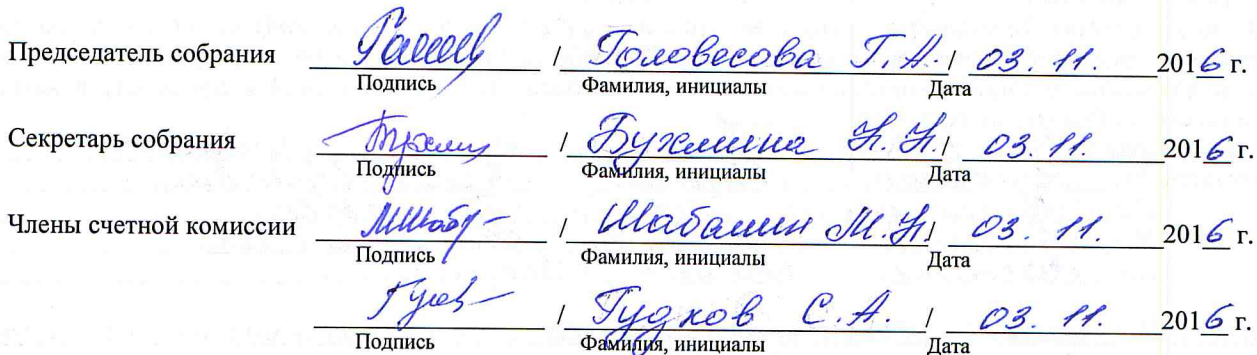 Председатель собрания / Головесова Г.А. / 03.11. 2016 г.
Подпись Фамилия, инициалы Дата
Секретарь собрания / Бухмина Н.Н. / 03.11. 2016 г.
Подпись Фамилия, инициалы Дата
Члены счетной комиссии / Шабалин М.Н. / 03.11. 2016 г.
Подпись Фамилия, инициалы Дата
/ Гудков С.А. / 03.11. 2016 г.
Подпись Фамилия, инициалы Дата